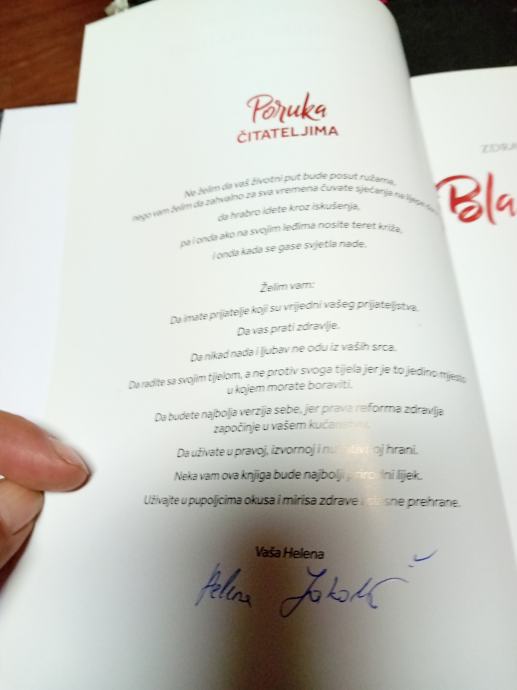 Poruka
ČITATELJIMA
Ne želim da vaš životni put bude posut ružama,
nego vam želim da zahvalno za sva vremena čuvate sjećanja na lijepe
da hrabro idete kroz iskušenja,
pa i onda ako na svojim leđima nosite teret križa,
i onda kada se gase svjetla nade.
Želim vam:
Da imate prijatelje koji su vrijedni vašeg prijateljstva.
Da vas prati zdravlje.
Da nikad nada i ljubav ne odu iz vaših srca.
Da radite sa svojim tijelom, a ne protiv svoga tijela jer je to jedino mjesto
u kojem morate boraviti.
Da budete najbolja verzija sebe, jer prava reforma zdravlja
započinje u vašem kućanstvu.
Da uživate u pravoj, izvornoj i nutritivnoj hrani.
Neka vam ova knjiga bude najbolji prirodni lijek.
Uživajte u pupoljcima okusa i mirisa zdrave i prehrane.
Vaša Helena
Helena
ZDRA
Bla